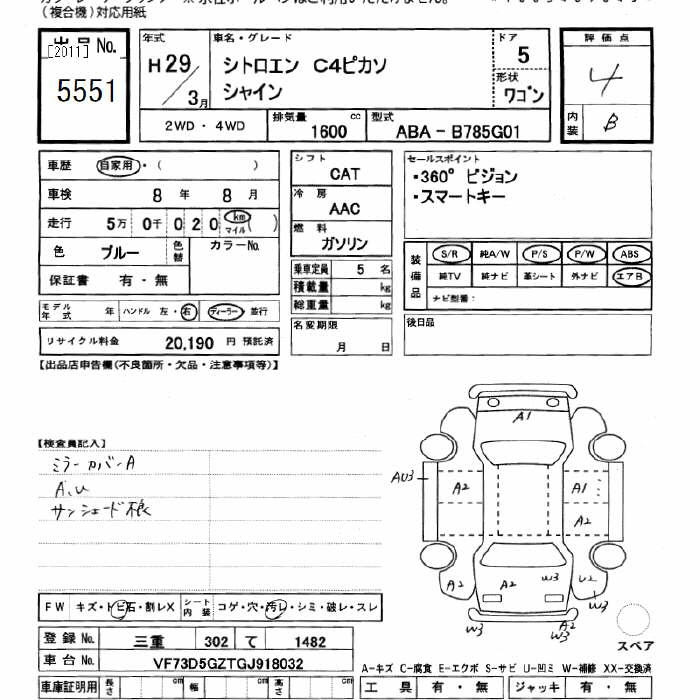 (複合機)対応用紙
出品No.
[2011]
5551
年式
H29/3月
車名・グレード
シトロエン C4ピカソ
シャイン
ドア
5
形状
ワゴン
評価点
4
内装
B
2WD・4WD
排気量
1600 cc
型式
ABA-B785G01
車歴 自家用・( )
車検 8年 8月
走行 5万 0千 0 2 0 km マイル ( )
色 ブルー 色替 カラーNo.
保証書 有・無
モデル年式 年 ハンドル 左・右 ディーラー 並行
リサイクル料金 20,190 円 預託済
シフト
CAT
冷房
AAC
燃料
ガソリン
乗車定員 5 名
積載量 kg
総重量 kg
名変期限
月 日
セールスポイント
・360° ビジョン
・スマートキー
装備品
S/R 純A/W P/S P/W ABS
純TV 純ナビ 革シート 外ナビ エアB
ナビ型番:
後日品
【出品店申告欄(不良箇所・欠品・注意事項等)】
【検査員記入】
ミラーカバーA
A.U
サンシェード根
A1
AU3
A2
A1
A2
A2
A2
W3
U2
W3
W3
A2
W3
スペア
FW キズ・トビ石・割レX シート内装 コゲ・穴・汚レ・シミ・破レ・スレ
登録No. 三重 302 て 1482
車台No. VF73D5GZTGJ918032
車庫証明用 長さ cm 幅 cm 高さ cm
A-キズ C-腐食 E-エクボ S-サビ U-凹ミ W-補修 XX-交換済
工具 有・無 ジャッキ 有・無